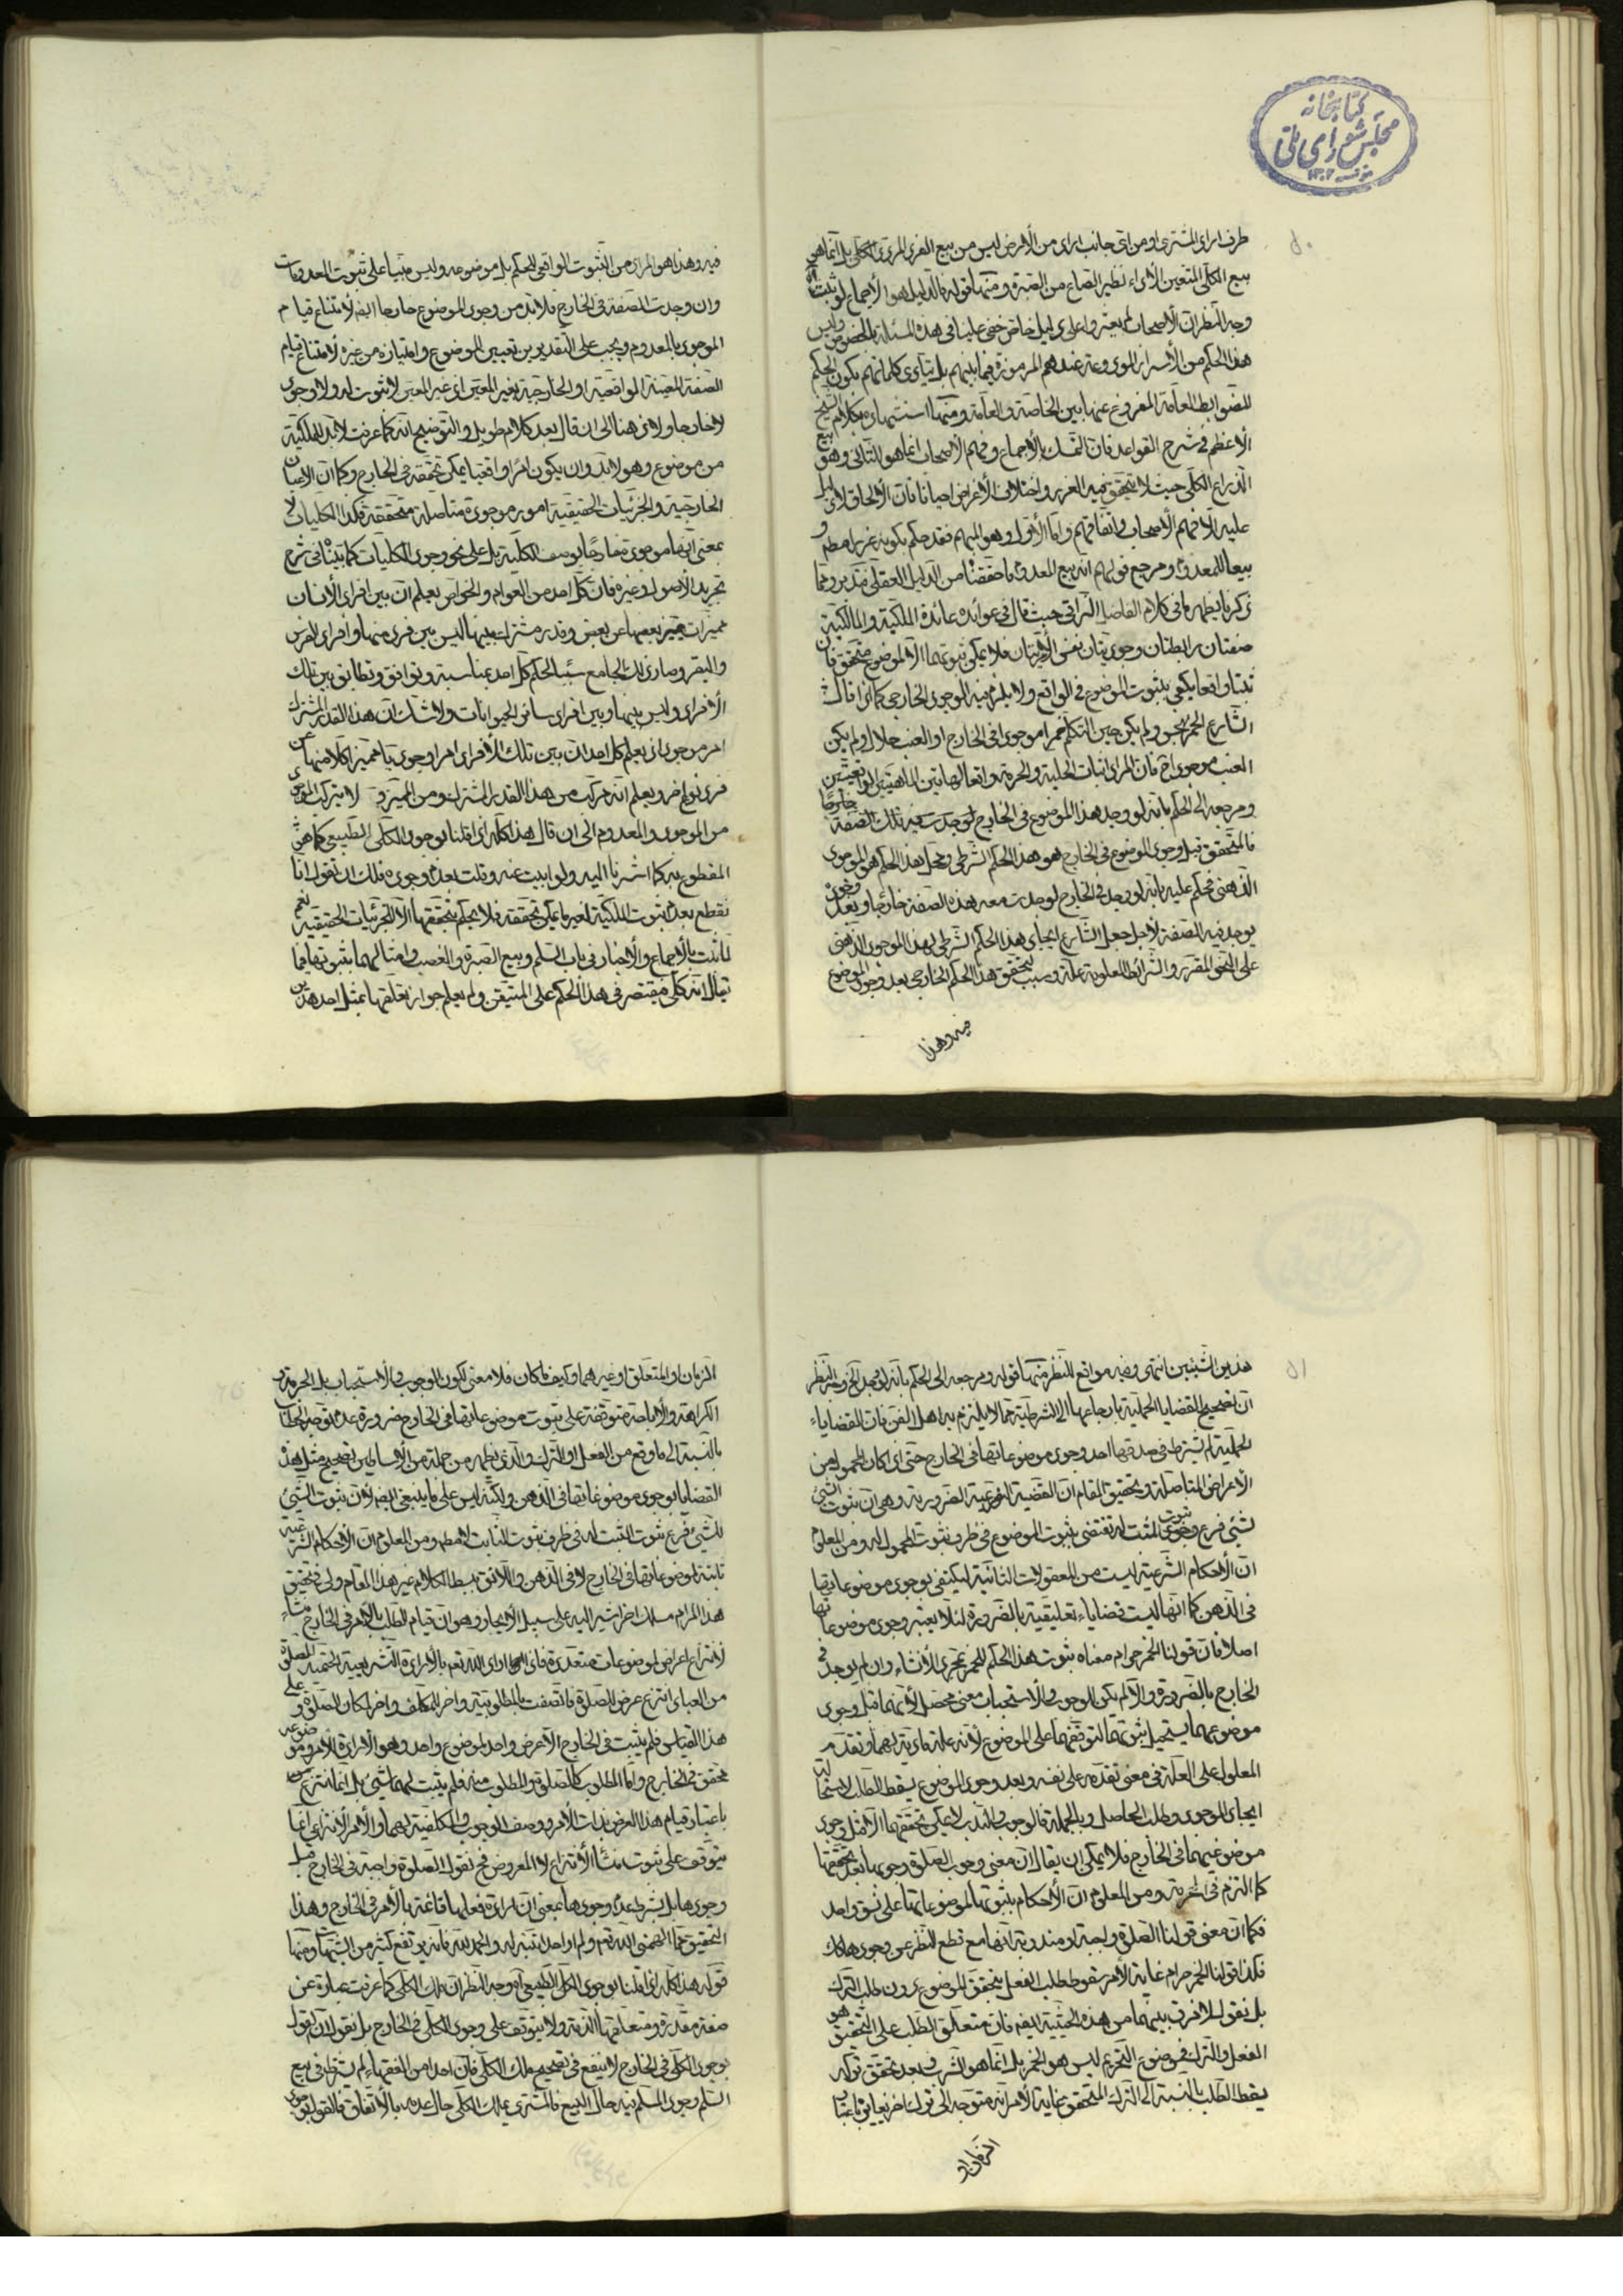 كتابخانه
مجلس شورای ملی
٥٠
طرف اراد المشتری او من ای جانب اراد من الأرض لیس من بیع الفرد المردد الكلی بل انما هی
بیع الكلی المتعین الأداء نظیر الصاع من الصبرة ومنها قوله فالدلیل هو الأجماع لو ثبت اه
وجه النظر ان الأصحاب لم یعثروا علی دلیل خاص خفی علینا فی هذه المسئلة بالخصوص ولیس
هذا الحكم من الأسرار المودعة عندهم المرموزة فیما بینهم بل ینادی كلماتهم بكون الحكم
للضوابط العامة المفروغ عنها بین الخاصة والعامة ومنها استشهاده بكلام الشیخ
الأعظم فی شرح القواعد فان التمسك بالأجماع وفهم الأصحاب انما هو للثانی وهو بیع
الذراع الكلی حیث لا یتحقق فیه الغرر واختلاف الأغراض احیانا فان الألحاق لا دلیل
علیه الا فهم الأصحاب واتفاقهم واما الأول وهو المبهم فقد حكم بكونه غررا مطلقا و
بیعا للمعدوم ومرجع قولهم انه بیع المعدوم ما حققناه من الدلیل العقلی فتدبر ومما
ذكرنا یظهر ما فی كلام الفاضل النراقی حیث قال فی عوائده عائدة الملكیة والمالكیة
صفتان مرابطتان وجودیتان نفس الأمریتان فلا یمكن ثبوتهما الا لموضوع متحقق فان
ثبتا واقعا یكفی ثبوت الموضوع فی الواقع ولا یلزم فیه الوجود الخارجی كما اذا قال
الشارع الخمر نجس ولم یكن حین التكلم خمرا موجودا فی الخارج او العنب حلال ولم یكن
العنب موجودا اه فان المراد اثبات الحلیة والحرمة واتصالهما بین الماهیتین الواقعیتین
ومرجعه الی الحكم بانه لو وجد هذا الموضوع فی الخارج لوجدت فیه تلك الصفة خارجا
فالمتحقق قبل وجود الموضوع فی الخارج هو هذا الحكم الشرطی ومحل هذا الحكم هو الموجود
الذهنی فحكم علیه بانه لو وجد فی الخارج لوجدت معه هذه الصفة خارجا وبعد وجوده
یوجد فیه الصفة لأجل جعل الشارع ایجاد هذا الحكم الشرطی لهذا الموجود الذهنی
علی النحو المقرر والشرائط المعلومة علة وسبب لتحقق هذا الحكم الخارجی بعد وجود الموضوع
فیه وهذا
فیه وهذا هو المراد من الثبوت الواقعی للحكم بل موضوعه ولیس مبنیا علی ثبوت المعدومات
وان وجدت الصفة فی الخارج فلا بد من وجود الموضوع خارجا ایضا لأمتناع قیام
الموجود بالمعدوم ویجب علی التقدیرین تعیین الموضوع وامتیازه من غیره لأمتناع قیام
الصفة المعینة الواقعیة او الخارجیة بغیر المعین اذ غیر المعین لا ثبوت له ولا وجود
لا خارجا ولا ذهنا الی ان قال بعد كلام طویل والتوضیح انه كما عرفت لا بد للملكیة
من موضوع وهو لا بد وان یكون امرا واقعیا یمكن تحققه فی الخارج وكما ان الاعیان
الخارجیة والجزئیات الحقیقیة امور موجودة متاصلة متحققة فكذا الكلیات لا
بمعنی انها موجودة خارجا بوصف الكلیة بل علی نحو وجود الكلیات كما بیناه فی شرح
تجرید الأصول وغیره فان كل احد من العوام والخواص یعلم ان بین افراد الأنسان
ممیزات یمیز بعضها عن بعض وقدر مشترك بینها لیس بین فرد منها وافراد الفرس
والبقر وصار ذلك الجامع سببا لحكم كل احد بمناسبة وتوافق وتطابق بین تلك
الأفراد ولیس بینها وبین افراد سائر الحیوانات ولا شك ان هذا القدر المشترك
امر موجود اذ یعلم كل احد ان بین تلك الأفراد امرا وجودیا ممیزا كلا منها عن
فرد نوع اخر ویعلم انه مركب من هذا القدر المشترك ومن الممیز و لا یتركب الموجود
من الموجود والمعدوم الی ان قال هذا كله اذا قلنا بوجود الكلی الطبیعی كما هو
المقطوع به كما اشرنا الیه ولو ابیت عنه وقلت بعدم وجوده فلك ان تقول انا
نقطع بعدم ثبوت الملكیة لغیر ما یمكن تحققه فلا یحكم بتحققها الا للجزئیات الحقیقیة نعم
لما ثبت بالأجماع والأخبار فی باب السلم وبیع الصبرة والغصب وامثالهما ثبوتها فیما
یقال انه كلی فیقتصر فی هذا الحكم علی المتیقن ولم یعلم جواز تعلقها بمثل احد هذین
٥١
هذین الشیئین انتهی وفیه مواقع للنظر منها قوله ومرجعه الی الحكم بانه لو وجد الخ وجه النظر
ان تصحیح القضایا الحملیة بارجاعها الی الشرطیة مما لا یلتزم به اهل الفن فان القضایاء
الحملیة لم یشترط فی صدقها احد وجود موضوعاتها فی الخارج حتی اذا كان المحمول من
الأعراض المتاصلة وتحقیق المقام ان القضیة الفرعیة الضروریة وهی ان ثبوت الشیء
لشیء فرع ثبوت المثبت له تقتضی ثبوت الموضوع فی ظرف ثبوت المحمول له ومن المعلوم
ان الأحكام الشرعیة لیست من المعقولات الثانیة لیكتفی بوجود موضوعاتها
فی الذهن كما انها لیست قضایاء تعلیقیة بالضرورة لئلا یعتبر وجود موضوعاتها
اصلا فان قولنا الخمر حرام معناه ثبوت هذا الحكم للخمر بمجرد الأنشاء وان لم یوجد فی
الخارج بالضرورة والا لم یكن للوجوب والأستحباب معنی محصل لأنهما قبل وجود
موضوعهما یستحیل ثبوتهما لتوقفهما علی الموضوع لأنه علة مادیة لهما وتقدم
المعلول علی العلة فی معنی تقدمه علی نفسه وبعد وجود الموضوع یسقط الطلب لاستحالة
ایجاد الموجود وطلب الحاصل وبالجملة فالوجوب والندب لا یمكن تحققهما الا قبل وجود
موضوعیهما فی الخارج فلا یمكن ان یقال ان معنی وجوب الصلوة وجوبها بعد تحققها
كما التزم فی الحرمة ومن المعلوم ان الأحكام ثبوتها لموضوعاتها علی نسق واحد
فكما ان معنی قولنا الصلوة واجبة او مندوبة انها مع قطع النظر عن وجودها كك
فكذا قولنا الخمر حرام غایة الأمر سقوط طلب الفعل بتحقق الموضوع دون طلب الترك
بل نقول لا فرق بینهما من هذه الحیثیة ایضا فان متعلق الطلب علی التحقیق هو
الفعل والترك فموضوع التحریم لیس هو الخمر بل انما هو الشرب فبعد تحقق تركه
یسقط الطلب بالنسبة الی الترك المتحقق غایة الأمر انه متوجه الی ترك اخر یغایره باعتبار
الزمان او
الزمان او المتعلق او غیرهما وكیف كان فلا معنی لكون الوجوب والأستحباب بل الحرمة و
الكراهة والأباحة متوقفة علی ثبوت موضوعاتها فی الخارج ضرورة عدم توجه الخطاب
بالنسبة الی ما وقع من الفعل او الترك والذی یظهر من جملة من الأساطین تصحیح مثل هذه
القضایا بوجود موضوعاتها فی الذهن ولكنه لیس علی ما ینبغی ایضا لأن ثبوت الشیء
للشیء فرع ثبوت المثبت له فی ظرف ثبوت الثابت لا مطلقا ومن المعلوم ان الأحكام الشرعیة
ثابتة لموضوعاتها فی الخارج لا فی الذهن واللائق ببسط الكلام غیر هذا المقام ولی فی تحقیق
هذا المرام مسلك اخر اشیر الیه علی سبیل الأیجاز وهو ان قیام الطلب بالامر فی الخارج منشاء
لأنتزاع اعراض لموضوعات متعددة فاذا اراد الله تعالی بالأرادة التشریعیة الحتمیة الصلوة
من العباد انتزع عرض للصلوة فاتصفت بالمطلوبیة واخر للمكلف واخر لمكان الصلوة وعلی
هذا القیاس فلم یثبت فی الخارج الا عرض واحد لموضوع واحد وهو الأرادة للامر وموضوعه
محقق فی الخارج واما المطلوب كالصلوة والمطلوب منه فلم یثبت لهما شیء بل انما انتزع عرض
باعتبار قیام هذا العرض بذات الأمر ووصف الوجوب والمكلفیة لهما والأمر الأنتزاعی انما
یتوقف علی ثبوت منشأ الأنتزاع لا المعروض فح نقول الصلوة واجبة فی الخارج قبل
وجودها بل بشرط عدم وجودها بمعنی ان ارادة فعلها قائمة بالأمر فی الخارج وهذا
التحقیق مما الهمنی الله تعالی ولم ار احدا تنبه له والحمد لله فانه یرتفع كثیر من الشبهات ومنها
قوله هذا كله اذا قلنا بوجود الكلی الطبیعی اه وجه النظر ان ملك الكلی كما عرفت عبارة عن
صفة مقدرة ومتعلقها الذمة ولا یتوقف علی وجود الكلی فی الخارج بل نقول ان القول
بوجود الكلی فی الخارج لا ینفع فی تصحیح ملك الكلی فان احدا من الفقهاء لم یشترط فی بیع
السلم وجود المسلم فیه حال البیع فالمشتری یملك الكلی حال عدمه بالأتفاق فالقول بوجود